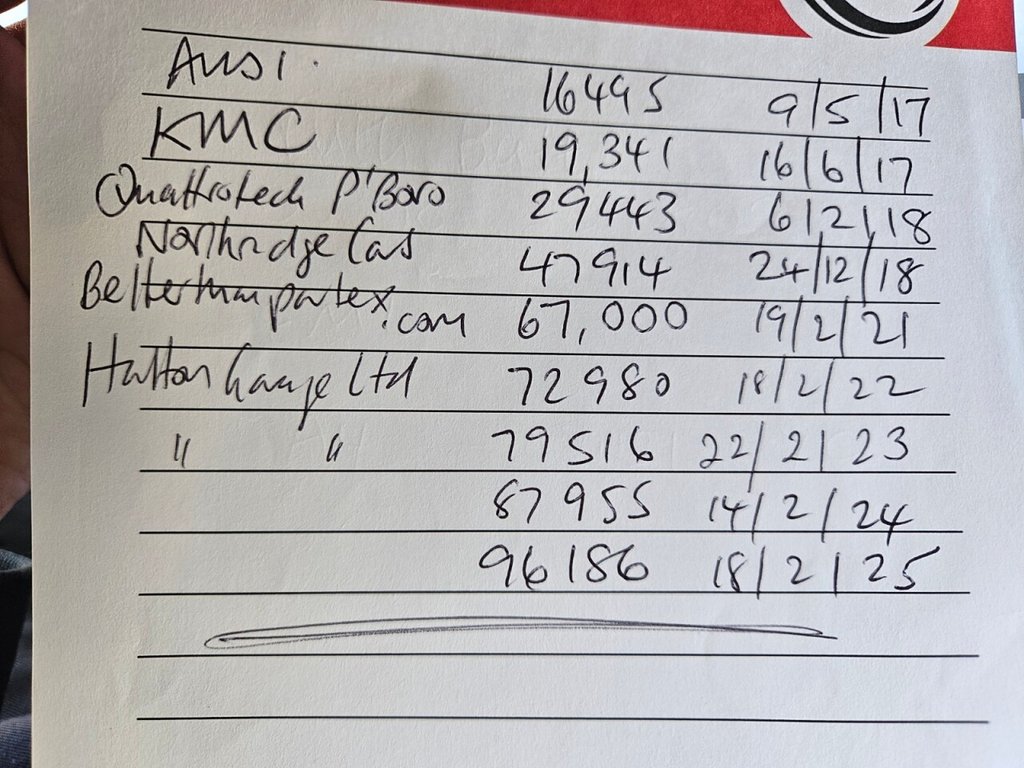 AUDI. 16495 9/5/17
KMC 19,341 16/6/17
Quattrotech P'Boro 29443 6/2/18
Northridge Cars 47914 24/12/18
Betterthanpartex.com 67,000 19/2/21
Hatton Garage Ltd 72980 18/2/22
" " 79516 22/2/23
87955 14/2/24
96186 18/2/25